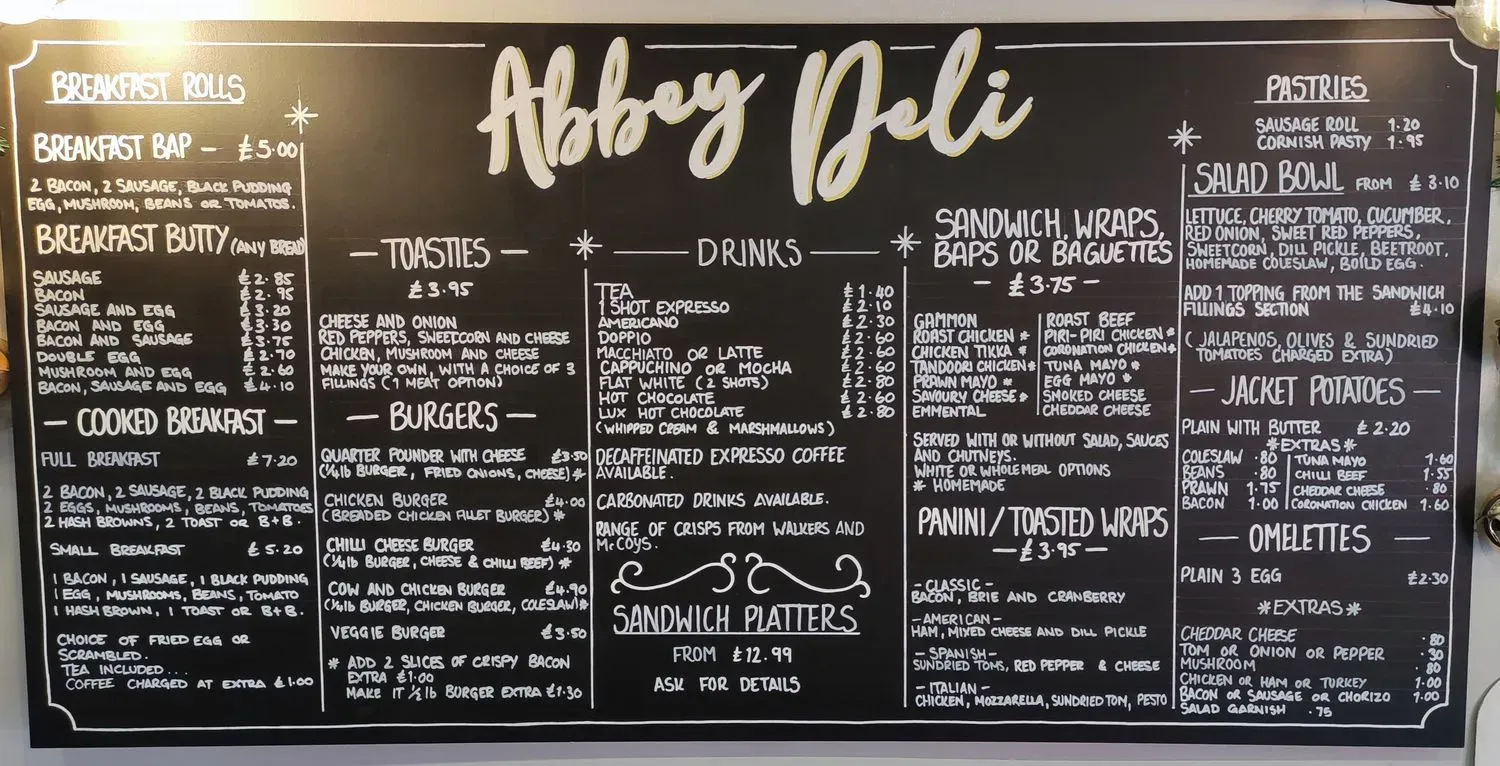 Abbey Deli
BREAKFAST ROLLS
BREAKFAST BAP - £5.00
2 BACON, 2 SAUSAGE, BLACK PUDDING
EGG, MUSHROOM, BEANS OR TOMATOS.
BREAKFAST BUTTY (ANY BREAD)
SAUSAGE £2.85
BACON £2.95
SAUSAGE AND EGG £3.20
BACON AND EGG £3.30
BACON AND SAUSAGE £3.75
DOUBLE EGG £2.70
MUSHROOM AND EGG £2.60
BACON, SAUSAGE AND EGG £4.10
- COOKED BREAKFAST -
FULL BREAKFAST £7.20
2 BACON, 2 SAUSAGE, 2 BLACK PUDDING
2 EGGS, MUSHROOMS, BEANS, TOMATOES
2 HASH BROWNS, 2 TOAST OR B+B.
SMALL BREAKFAST £5.20
1 BACON, 1 SAUSAGE, 1 BLACK PUDDING
1 EGG, MUSHROOMS, BEANS, TOMATO
1 HASH BROWN, 1 TOAST OR B+B.
CHOICE OF FRIED EGG OR
SCRAMBLED.
TEA INCLUDED...
COFFEE CHARGED AT EXTRA £1.00
- TOASTIES -
£3.95
CHEESE AND ONION
RED PEPPERS, SWEETCORN AND CHEESE
CHICKEN, MUSHROOM AND CHEESE
MAKE YOUR OWN, WITH A CHOICE OF 3
FILLINGS (1 MEAT OPTION)
- BURGERS -
QUARTER POUNDER WITH CHEESE £3.50
(1/4 lb BURGER, FRIED ONIONS, CHEESE) *
CHICKEN BURGER £4.00
(BREADED CHICKEN FILLET BURGER) *
CHILLI CHEESE BURGER £4.30
(1/4 lb BURGER, CHEESE & CHILLI BEEF) *
COW AND CHICKEN BURGER £4.90
(1/4 lb BURGER, CHICKEN BURGER, COLESLAW) *
VEGGIE BURGER £3.50
* ADD 2 SLICES OF CRISPY BACON
EXTRA £1.00
MAKE IT 1/2 lb BURGER EXTRA £1.30
- DRINKS -
TEA £1.40
1 SHOT EXPRESSO £2.10
AMERICANO £2.30
DOPPIO £2.60
MACCHIATO OR LATTE £2.60
CAPPUCHINO OR MOCHA £2.60
FLAT WHITE (2 SHOTS) £2.80
HOT CHOCOLATE £2.60
LUX HOT CHOCOLATE £2.80
(WHIPPED CREAM & MARSHMALLOWS)
DECAFFEINATED EXPRESSO COFFEE
AVAILABLE.
CARBONATED DRINKS AVAILABLE.
RANGE OF CRISPS FROM WALKERS AND
McCOYS.
SANDWICH PLATTERS
FROM £12.99
ASK FOR DETAILS
SANDWICH, WRAPS,
BAPS OR BAGUETTES
- £3.75 -
GAMMON ROAST BEEF
ROAST CHICKEN * PIRI-PIRI CHICKEN *
CHICKEN TIKKA * CORONATION CHICKEN *
TANDOORI CHICKEN * TUNA MAYO *
PRAWN MAYO * EGG MAYO *
SAVOURY CHEESE * SMOKED CHEESE
EMMENTAL CHEDDAR CHEESE
SERVED WITH OR WITHOUT SALAD, SAUCES
AND CHUTNEYS.
WHITE OR WHOLEMEAL OPTIONS
* HOMEMADE
PANINI / TOASTED WRAPS
- £3.95 -
- CLASSIC -
BACON, BRIE AND CRANBERRY
- AMERICAN -
HAM, MIXED CHEESE AND DILL PICKLE
- SPANISH -
SUNDRIED TOMS, RED PEPPER & CHEESE
- ITALIAN -
CHICKEN, MOZZARELLA, SUNDRIED TOM, PESTO
PASTRIES
SAUSAGE ROLL 1.20
CORNISH PASTY 1.95
SALAD BOWL FROM £3.10
LETTUCE, CHERRY TOMATO, CUCUMBER,
RED ONION, SWEET RED PEPPERS,
SWEETCORN, DILL PICKLE, BEETROOT,
HOMEMADE COLESLAW, BOILD EGG.
ADD 1 TOPPING FROM THE SANDWICH
FILLINGS SECTION £4.10
(JALAPENOS, OLIVES & SUNDRIED
TOMATOES CHARGED EXTRA)
- JACKET POTATOES -
PLAIN WITH BUTTER £2.20
* EXTRAS *
COLESLAW .80 TUNA MAYO 1.60
BEANS .80 CHILLI BEEF 1.55
PRAWN 1.75 CHEDDAR CHEESE .80
BACON 1.00 CORONATION CHICKEN 1.60
- OMELETTES -
PLAIN 3 EGG £2.30
* EXTRAS *
CHEDDAR CHEESE .80
TOM OR ONION OR PEPPER .30
MUSHROOM .80
CHICKEN OR HAM OR TURKEY 1.00
BACON OR SAUSAGE OR CHORIZO 1.00
SALAD GARNISH .75